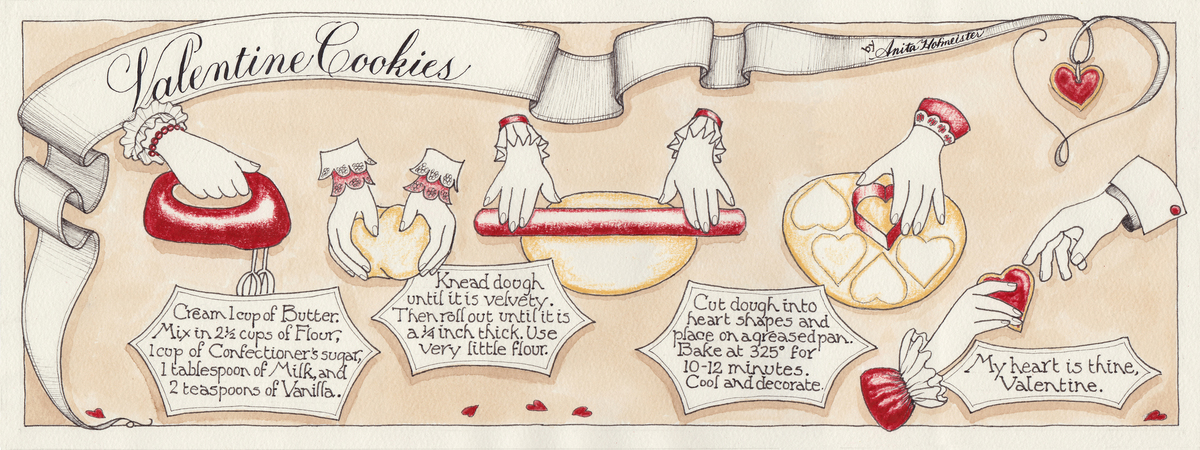 Valentine Cookies
by Anita Hofmeister
Cream 1 cup of Butter.
Mix in 2½ cups of Flour,
1 cup of Confectioner's sugar,
1 tablespoon of Milk, and
2 teaspoons of Vanilla.
Knead dough
until it is velvety.
Then roll out until it is
a ¼ inch thick. Use
very little flour.
Cut dough into
heart shapes and
place on a greased pan.
Bake at 325° for
10-12 minutes.
Cool and decorate.
My heart is thine,
Valentine.